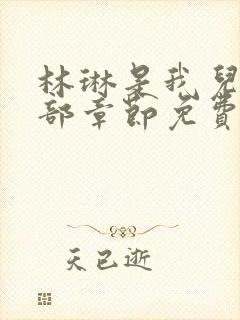 林琳是我兒
部章節免費
天已逝